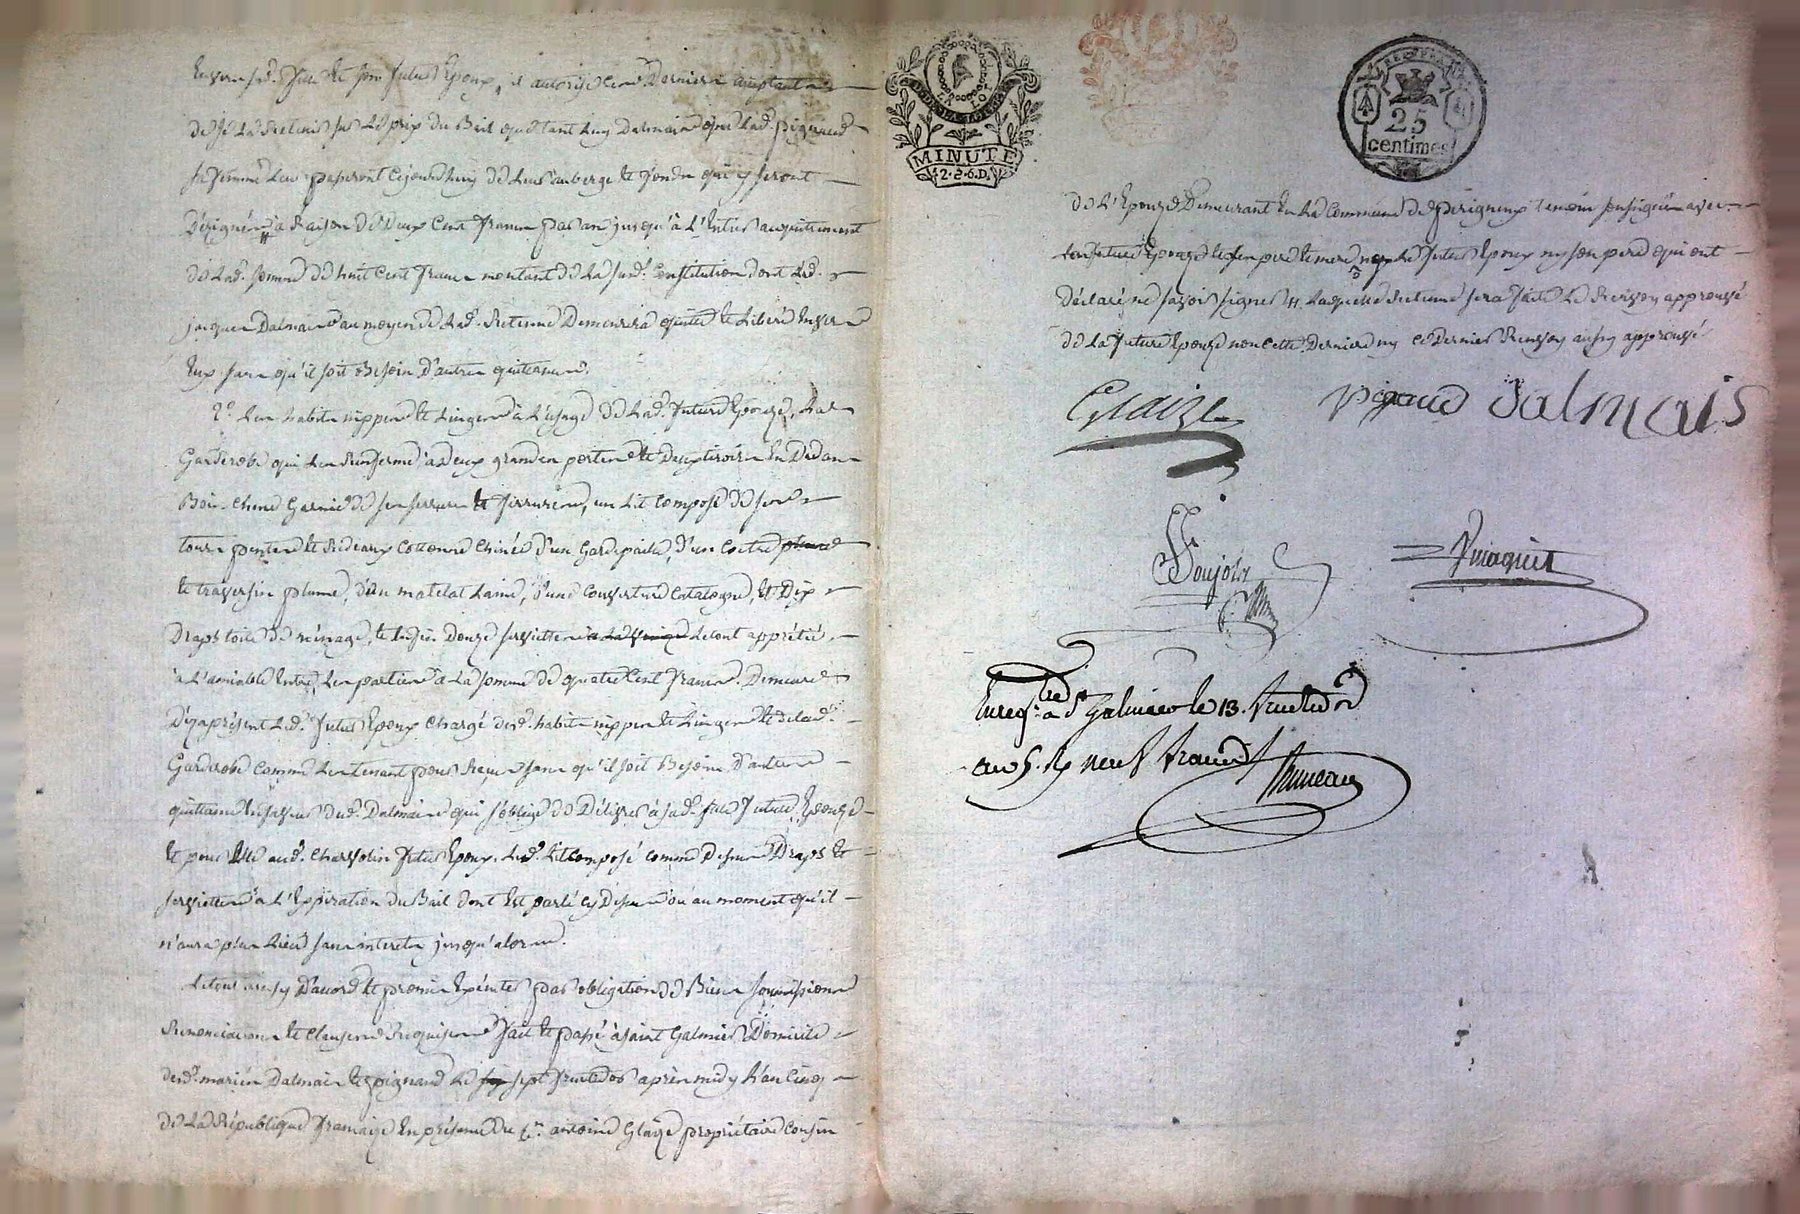 Envers sad. fille et son futur Epoux, il autorise ces Derniers
de se la Retenir sur Le prix du Bail que tant luy Dalmais que Lad. pignaud
sa femme Leur passeront cejourd'huy de Leur auberge et fonds qui y seront
Désignés à Raison de Deux Cent francs par an jusqu'à L'Entier acquittement
de Lad. somme de huit Cent francs montant de La susd. Constitution dont Led.
jacques Dalmais au moyen de Lad. Retenue Demeurera quitte et Libéré Envers
Eux sans qu'il soit Besoin D'autre quittance.
2.° Les habits nippes et Linges à L'usage de Lad. future Epouse, La
Garderobe qui Les Renferme à Deux grandes portes et Deux tiroirs En Dedans
Bois Chene Garnie de ses serrures et ferrures, un Lit composé de ses
tours pentes et Rideaux Cottonne Chinée D'un Gardepaille, D'un Coetre plume
et traversin plume, D'un matelat Laine, D'une Couverture Catalogne, et Dix
Draps toile de ménage, et Enfin Douze serviettes Le tout apprétié
à L'amiable Entre Les parties à La somme de quatre Cent francs. Demeure
Dèzaprésent Led. futur Epoux Chargé desd. habits nippes et Linges et de lad.
Garderobe Comme Les tenant pour Reçus sans qu'il soit Besoin D'autre
quittance En faveur dud. Dalmais qui s'oblige de Délivrer à sad. fille future Epouse
et pour Elle aud. Charvolin futur Epoux Led. Lit Composé comme Dessus Draps et
serviettes à L'Expiration du Bail dont Est parlé cy Dessus ou au moment qu'il
n'aura plus Lieu sans interets jusqu'alors.
Le tout ainsy D'accord et promis Exécuter par obligation de Biens soumissions
Renonciations et Clauses Requises fait et passé à saint Galmier Domicile
desd. mariés Dalmais et pignaud Le sept fructidor après midy L'an Cinq
de La République française En présence du C.en antoine Glaize propriétaire Cousin
MINUTE
2.S.6.D.
REP. FRA.
25
centimes
de L'Epouse Demeurant En La Commune de perigneux temoin soussigné avec
La future Epouse Ses pere et mere non Le futur Epoux ny son pere qui ont
Déclaré ne savoir signer # Laquelle Retenue sera faite Le Renvoy approuvé
de La future Epouse non cette Derniere ny ce Dernier Renvoy aussy approuvé
Glaize pignaud Dalmais
Enreg.tré à S.t Galmier le 13. fructidor
an 5. Rç neuf francs